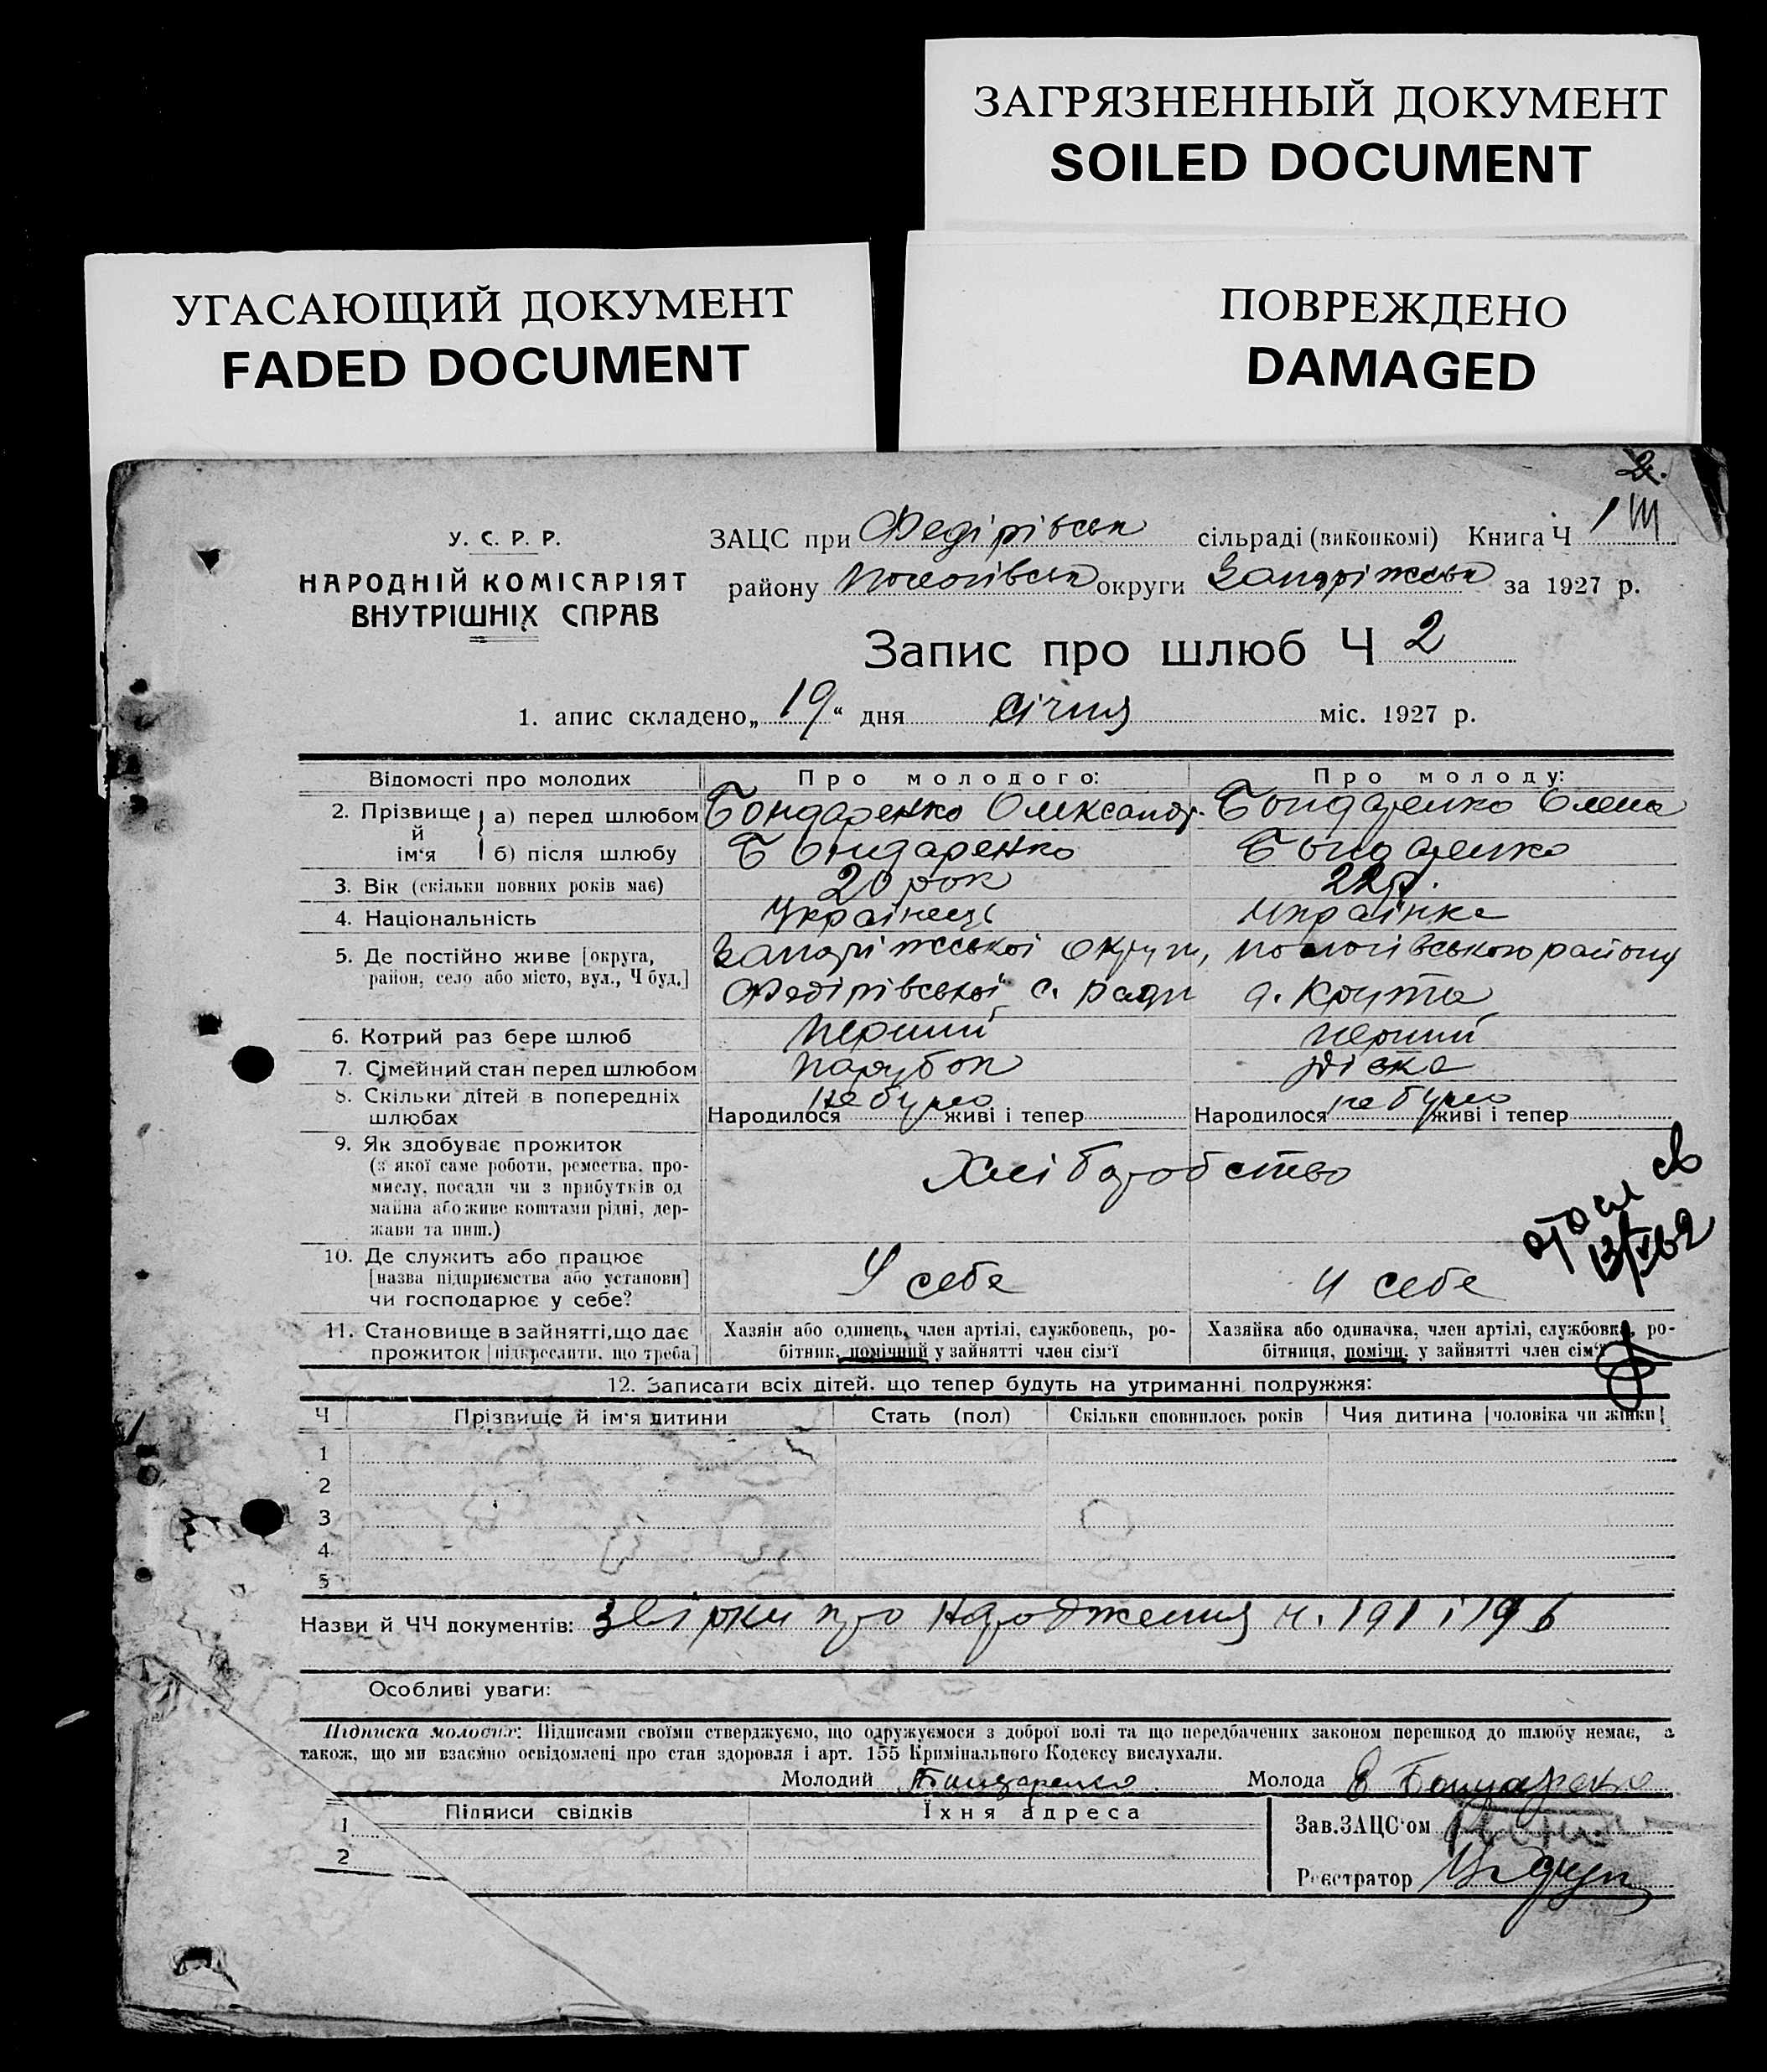 ЗАГРЯЗНЕННЫЙ ДОКУМЕНТ
SOILED DOCUMENT
УГАСАЮЩИЙ ДОКУМЕНТ
FADED DOCUMENT
ПОВРЕЖДЕНО
DAMAGED
2.
У. С. Р. Р.
НАРОДНІЙ КОМІСАРІЯТ
ВНУТРІШНІХ СПРАВ
ЗАЦС при Федірівськ сільраді (виконкомі) Книга Ч 1
району Пологівськ округи Запоріжськ за 1927 р.
Запис про шлюб Ч 2
1. апис складено „ 19 “ дня січня міс. 1927 р.
Відомості про молодих Про молодого: Про молоду:
2. Прізвище й ім‘я
а) перед шлюбом Бондаренко Олександр. Бондаренко Олена
б) після шлюбу Бондаренко Бондаренко
3. Вік (скільки повних років має) 20 рок 22 р.
4. Національність Українець Українка
5. Де постійно живе [округа, Запоріжської округи, Пологівського району
район, село або місто, вул., Ч буд.] Федірівської с. ради с. Крута
6. Котрий раз бере шлюб Перший Перший
7. Сімейний стан перед шлюбом Парубок дівка
8. Скільки дітей в попередніх шлюбах
Народилося не було живі і тепер Народилося не було живі і тепер
9. Як здобуває прожиток Хліборобство
(з якої саме роботи, ремества, про-
мислу, посади чи з прибутків од
майна або живе коштами рідні, дер-
жави та инш.)
10. Де служить або працює
[назва підприємства або установи] У себе У себе
чи господарює у себе?
11. Становище в зайнятті, що дає
прожиток [підкреслити, що треба]
Хазяїн або одинець, член артілі, службовець, ро-
бітник, помічний у зайнятті член сім‘ї
Хазяйка або одиначка, член артілі, службовка, ро-
бітниця, помічн. у зайнятті член сім‘ї
12. Записати всіх дітей, що тепер будуть на утриманні подружжя:
Ч Прізвище й ім‘я дитини Стать (пол) Скільки сповнилось років Чия дитина [чоловіка чи жінки]
1
2
3
4
5
Назви й ЧЧ документів: звірки про народження ч. 191 і 196
Особливі уваги:
Підписка молодих: Підписами своїми стверджуємо, що одружуємося з доброї волі та що передбачених законом перешкод до шлюбу немає, а
також, що ми взаємно освідомлені про стан здоровля і арт. 155 Кримінального Кодексу вислухали.
Молодий Бондаренко Молода Е Бондаренко
Підписи свідків Їхня адреса
1
2
Зав. ЗАЦС‘ом
Реєстратор